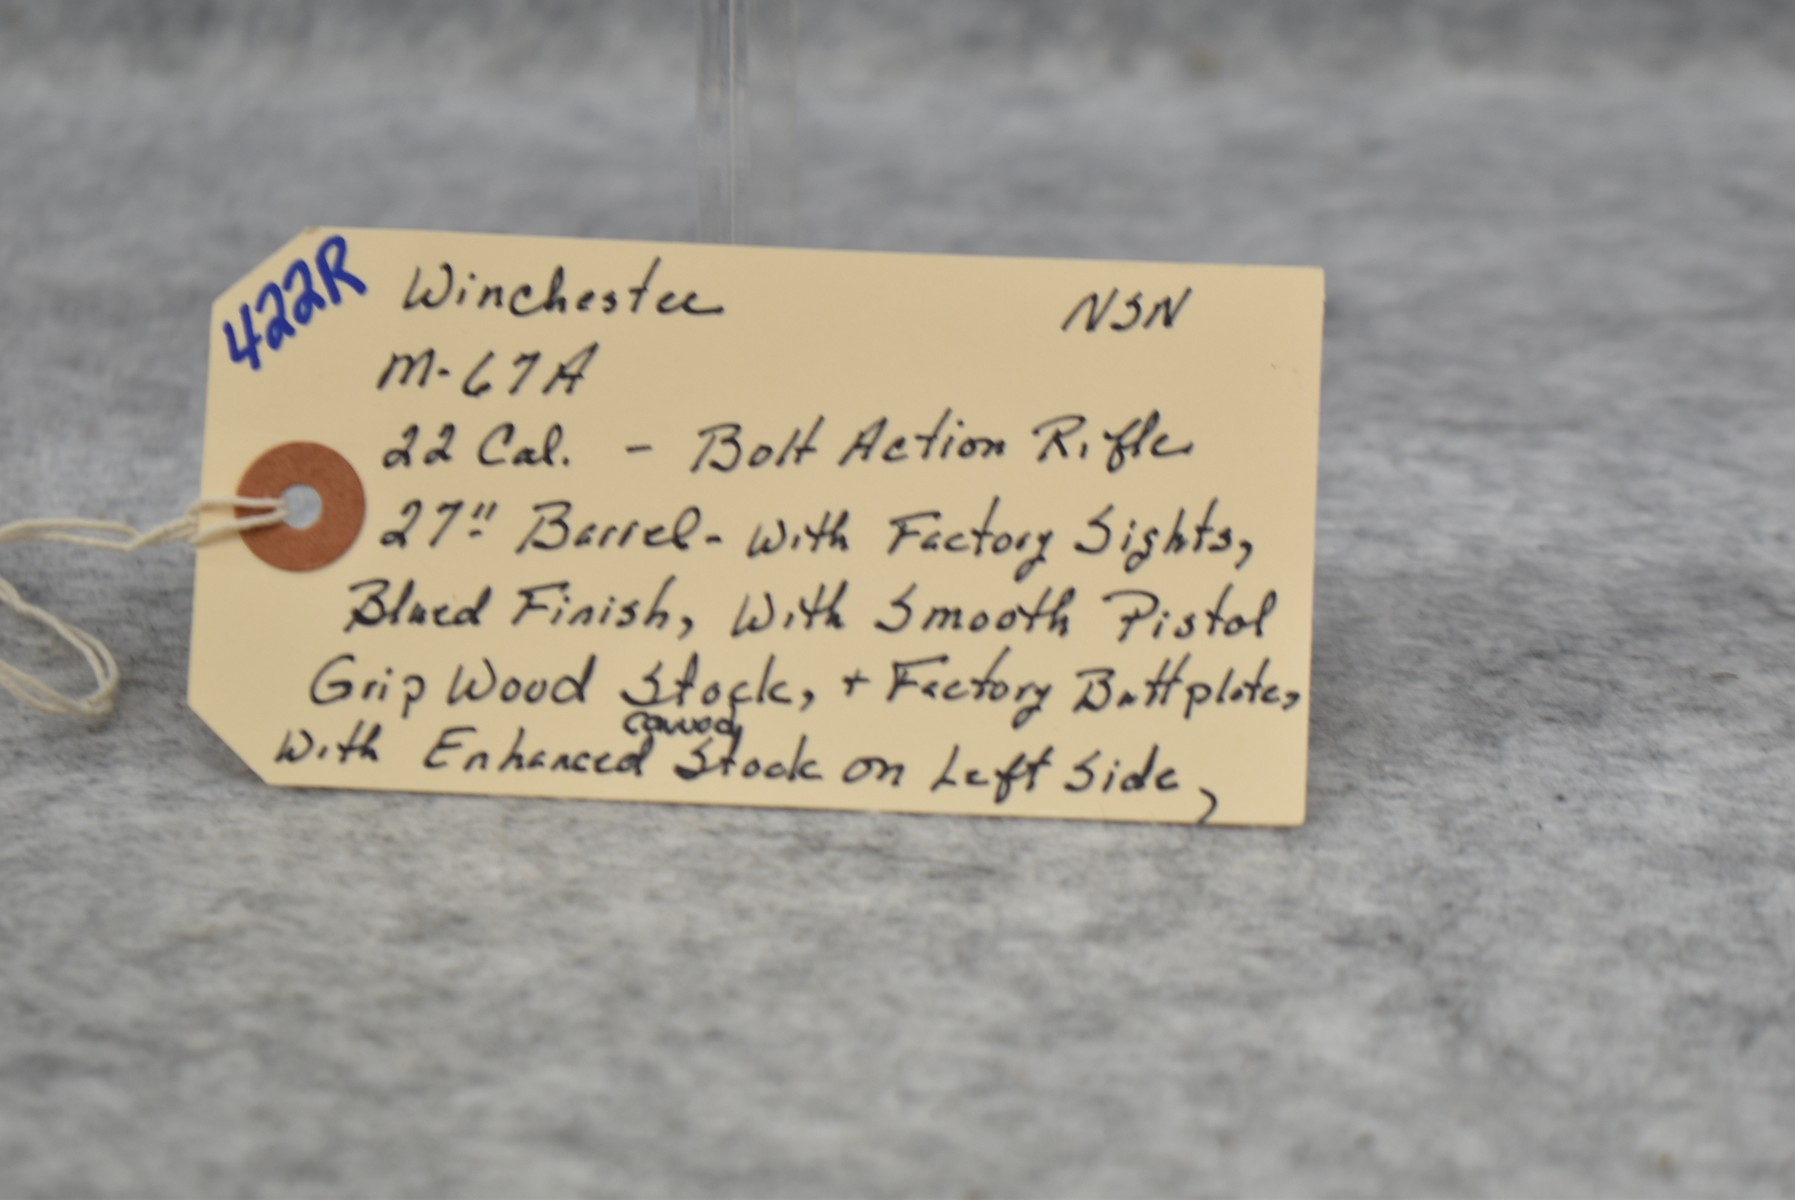 422R
Winchester NSN
M-67A
22 Cal. - Bolt Action Rifle
27" Barrel - With Factory Sights,
Blued Finish, With Smooth Pistol
Grip Wood Stock, + Factory Buttplate,
carved
With Enhanced Stock on Left Side,